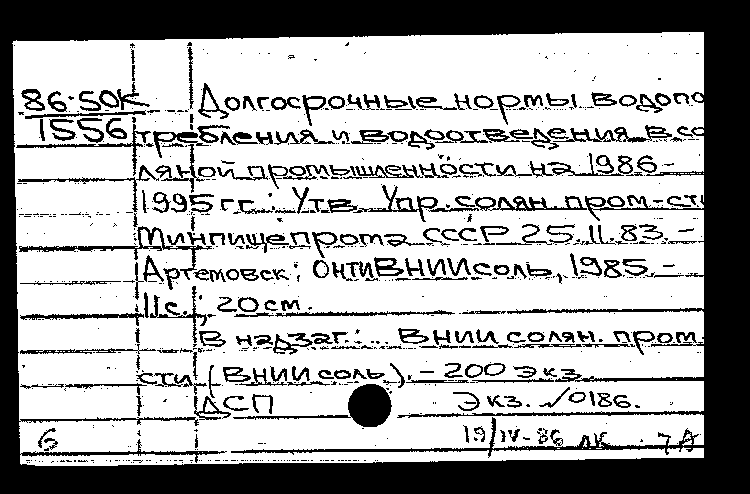 86-50К Долгосрочные нормы водопо
1556 требления и водоотведения в со
ляной промышленности на 1986-
1995 гг.: Утв. Упр. солян. пром-сти
Минпищепрома СССР 25.11.83. -
Артемовск: ОНТИ ВНИИсоль, 1985. -
11с.; 20 см.
В надзаг.: ВНИИ солян. пром.
сти (ВНИИсоль). - 200 экз.
ДСП Экз. №0186.
6 19/IV-86 лк 7А